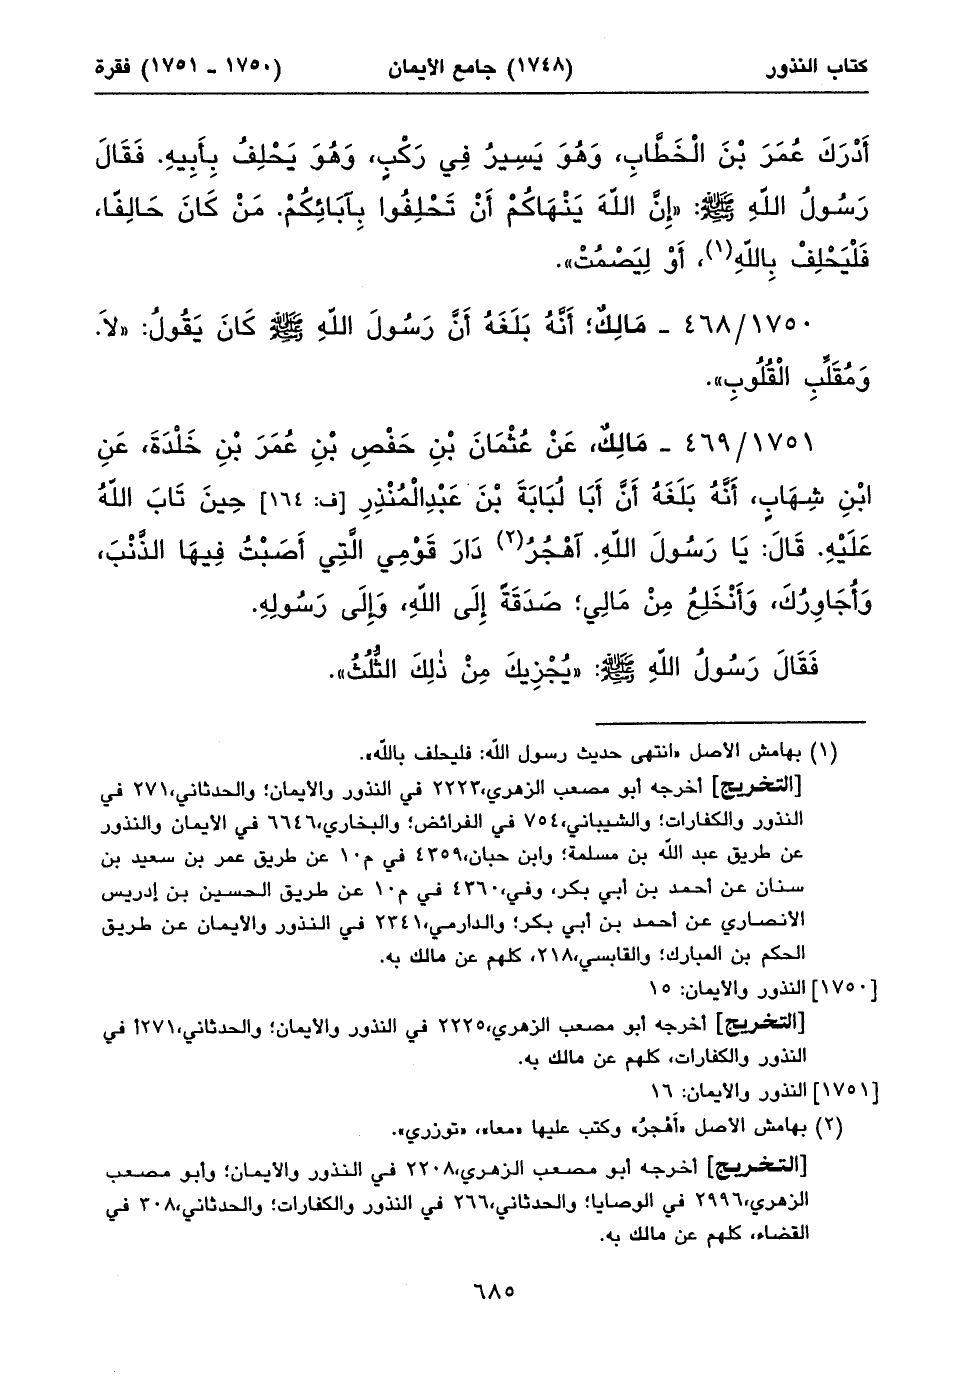 كتاب النذور (١٧٤٨) جامع الأيمان (١٧٥٠ - ١٧٥١) فقرة
أَدْرَكَ عُمَرَ بْنَ الْخَطَّابِ، وَهُوَ يَسِيرُ فِي رَكْبٍ، وَهُوَ يَحْلِفُ بِأَبِيهِ. فَقَالَ
رَسُولُ اللّهِ ﷺ: «إِنَّ اللّهَ يَنْهَاكُمْ أَنْ تَحْلِفُوا بِآبَائِكُمْ. مَنْ كَانَ حَالِفًا،
فَلْيَحْلِفْ بِاللّهِ(١)، أَوْ لِيَصْمُتْ».
٤٦٨/١٧٥٠ - مَالِكٌ؛ أَنَّهُ بَلَغَهُ أَنَّ رَسُولَ اللّهِ ﷺ كَانَ يَقُولُ: «لاَ.
وَمُقَلِّبِ الْقُلُوبِ».
٤٦٩/١٧٥١ - مَالِكٌ، عَنْ عُثْمَانَ بْنِ حَفْصِ بْنِ عُمَرَ بْنِ خَلْدَةَ، عَنِ
ابْنِ شِهَابٍ، أَنَّهُ بَلَغَهُ أَنَّ أَبَا لُبَابَةَ بْنَ عَبْدِالْمُنْذِرِ [ف: ١٦٤] حِينَ تَابَ اللّهُ
عَلَيْهِ. قَالَ: يَا رَسُولَ اللهِ. آهْجُرُ(٢) دَارَ قَوْمِي الَّتِي أَصَبْتُ فِيهَا الذَّنْبَ،
وَأُجَاوِرُكَ، وَأَنْخَلِعُ مِنْ مَالِي؛ صَدَقَةً إِلَى اللّهِ، وَإِلَى رَسُولِهِ.
فَقَالَ رَسُولُ اللّهِ ﷺ: «يُجْزِيكَ مِنْ ذٰلِكَ الثُّلُثُ».
(١) بهامش الأصل «انتهى حديث رسول اللّه: فليحلف باللّه».
[التخريج] أخرجه أبو مصعب الزهري،٢٢٢٣ في النذور والأيمان؛ والحدثاني،٢٧١ في
النذور والكفارات؛ والشيباني،٧٥٤ في الفرائض؛ والبخاري،٦٦٤٦ في الأيمان والنذور
عن طريق عبد اللّه بن مسلمة؛ وابن حبان،٤٣٥٩ في م١٠ عن طريق عمر بن سعيد بن
سنان عن أحمد بن أبي بكر، وفي،٤٣٦٠ في م١٠ عن طريق الحسين بن إدريس
الأنصاري عن أحمد بن أبي بكر؛ والدارمي،٢٣٤١ في النذور والأيمان عن طريق
الحكم بن المبارك؛ والقابسي،٢١٨، كلهم عن مالك به.
[١٧٥٠] النذور والأيمان: ١٥
[التخريج] أخرجه أبو مصعب الزهري،٢٢٢٥ في النذور والأيمان؛ والحدثاني،٢٧١أ في
النذور والكفارات، كلهم عن مالك به.
[١٧٥١] النذور والأيمان: ١٦
(٢) بهامش الأصل «أَهْجرُ» وكتب عليها «معا»، «توزري».
[التخريج] أخرجه أبو مصعب الزهري،٢٢٠٨ في النذور والأيمان؛ وأبو مصعب
الزهري،٢٩٩٦ في الوصايا؛ والحدثاني،٢٦٦ في النذور والكفارات؛ والحدثاني،٣٠٨ في
القضاء، كلهم عن مالك به.
٦٨٥